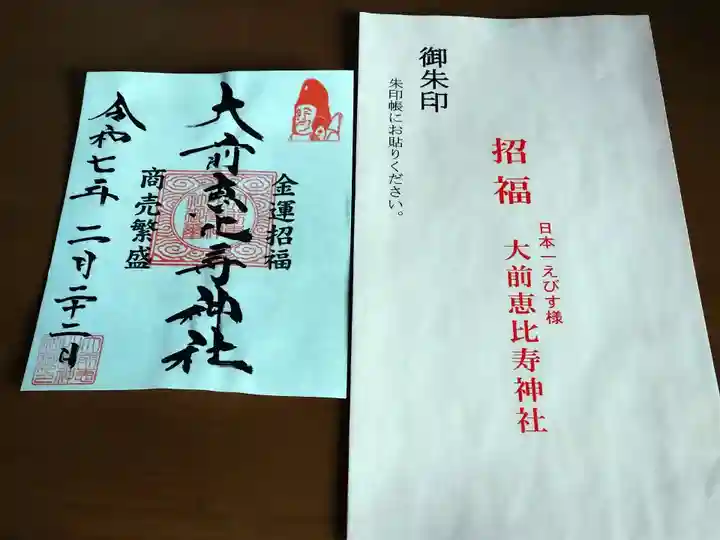 御朱印
朱印帳にお貼りください。
招福
日本一えびす様
大前恵比寿神社
金運招福
大前恵比寿神社
商売繁盛
令和七年 二月二十二日